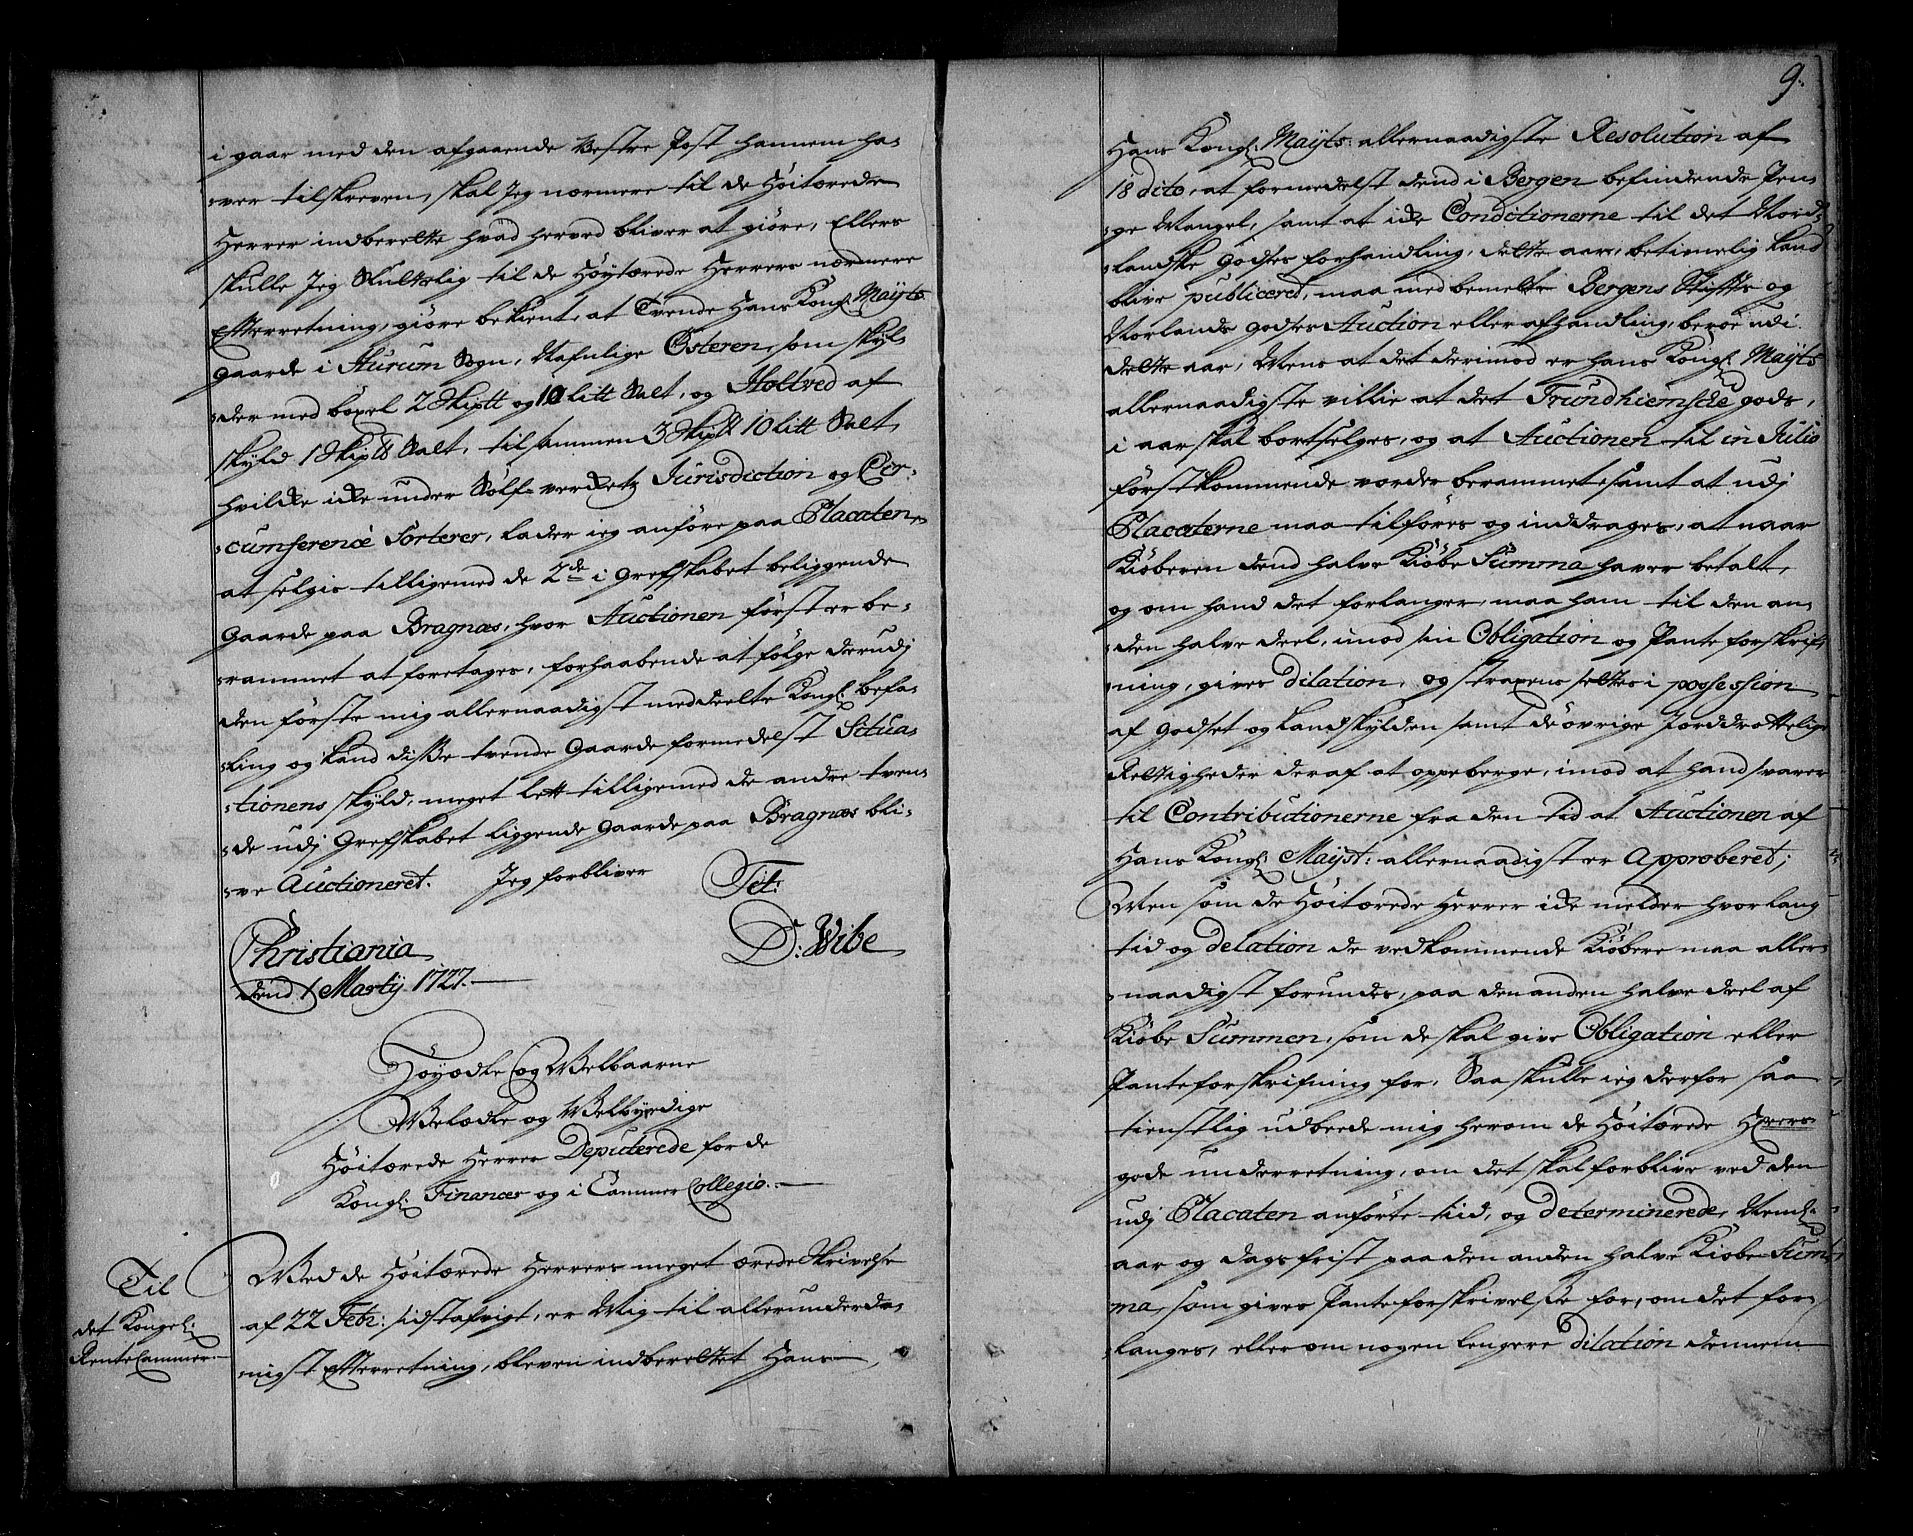 i gaar med den afgaaende Vestre Post hannem ha-
ver tilskreven, skal Jeg nærmere til de Høitærede
Herrer indberette hvad herved bliver at giøre, Ellers
skulle Jeg Skyldig til de Høytærede Herrers nærmere
Efterretning, giøre bekient, at Tvende Hans Kongl: Mayts
gaarde i Hurum Sogn, Nafnlige Østeren, som skyl-
der med boxel 2 Skiptt og 10 litt Salt, og Holtved af
skyld 1 Skiptt Salt, tilsammen 3 Skiptt 10 litt Salt,
hvilke icke under Sølf-verketz Jurisdiction og Cir-
cumference Sorterer, lader ieg anføre paa Placaten,
at selgis tilligemed de 2de i Grefskabet beliggende
Gaarde paa Bragnæs, hvor Auctionen først er be-
rammet at foretages, forhaabende at følge derudj
den første mig allernaadigst meddeelte Kongl: befa-
ling og kand disse tvende Gaarde formedelst Situa-
tionens skyld, meget lett tilligemed de andre tven-
de udj Grefskabet liggende Gaarde paa Bragnæs bli-
ve Auctioneret. Jeg forbliver Tit:
Christiania D: Wibe
dend 1 Martij 1727.
Høyædle og Welbaarne
Welædle og Welbyrdige
Høitærede Herrer Deputerede for de
Kongl: Financer og i Cammer Collegio.
Til
det Kongel:
Rente Cammer
Wed de Høitærede Herrers meget ærede Skrivelse
af 22 Febr: sidstafvigt, er Mig til allerunderda-
nigst Efterretning, bleven indberettet Hans
9.
Hans Kongl: Mayts: allernaadigste Resolution af
18 dito, at formedelst dend i Bergen befindende Pen-
ge Mangel, samt at icke Conditionerne til det Nord-
landske Godses forhandling, dette aar, betimelig kand
blive publiceret, maa med bemelte Bergens Stiffts og
Norlands Godses Auction eller afhandling, beroe udi
dette aar, Mens at det derimod er Hans Kongl: Mayts
allernaadigste villie at det Trundhiemske gods,
i aar skal bortselges, og at Auctionen til in Julio
førstkommende vorder berammet samt at udj
Placaterne maa tilføres og inddrages, at naar
Kiøberen dend halve Kiøbe Summa haver betalt,
og om hand det forlanger, maa ham til den an-
den halve deel, imod sin Obligation og Panteforskrif-
ning, gives dilation, og strax sættes i possession
af Godset og Landskylden samt de øvrige Jorddrottelige
Rettigheder deraf at oppeberge, imod at hand svarer
til Contributionerne fra den tid at Auctionen af
Hans Kongl: Mayst: allernaadigst er Approberet;
Men som de Høitærede Herrer icke melder hvor lang
tid og delation de vedkommende Kiøbere maa aller-
naadigst forundes, paa den anden halve deel af
Kiøbe Summen, som de skal give Obligation eller
Panteforskrifning for, Saa skulle ieg derfor saa
tienstlig udbeede mig herom de Høitærede Herrers
gode underretning, om det skal forblive ved den
udj Placaten anførte tiid, og determinerede, Neml:
aar og dags frist paa den anden halve Kiøbe Sum-
ma, som gives Panteforskrivelse for, om det for-
langes, eller om nogen lengere dilation dennem